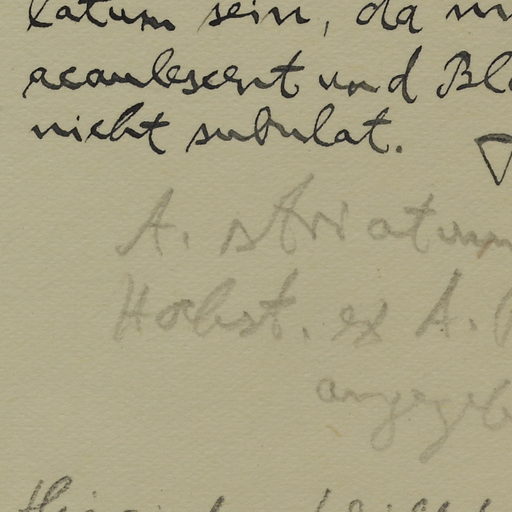 latum sein, da
acaulescent und Bl
nicht subulat.
A. striatum
Hochst. ex A.
angegeb